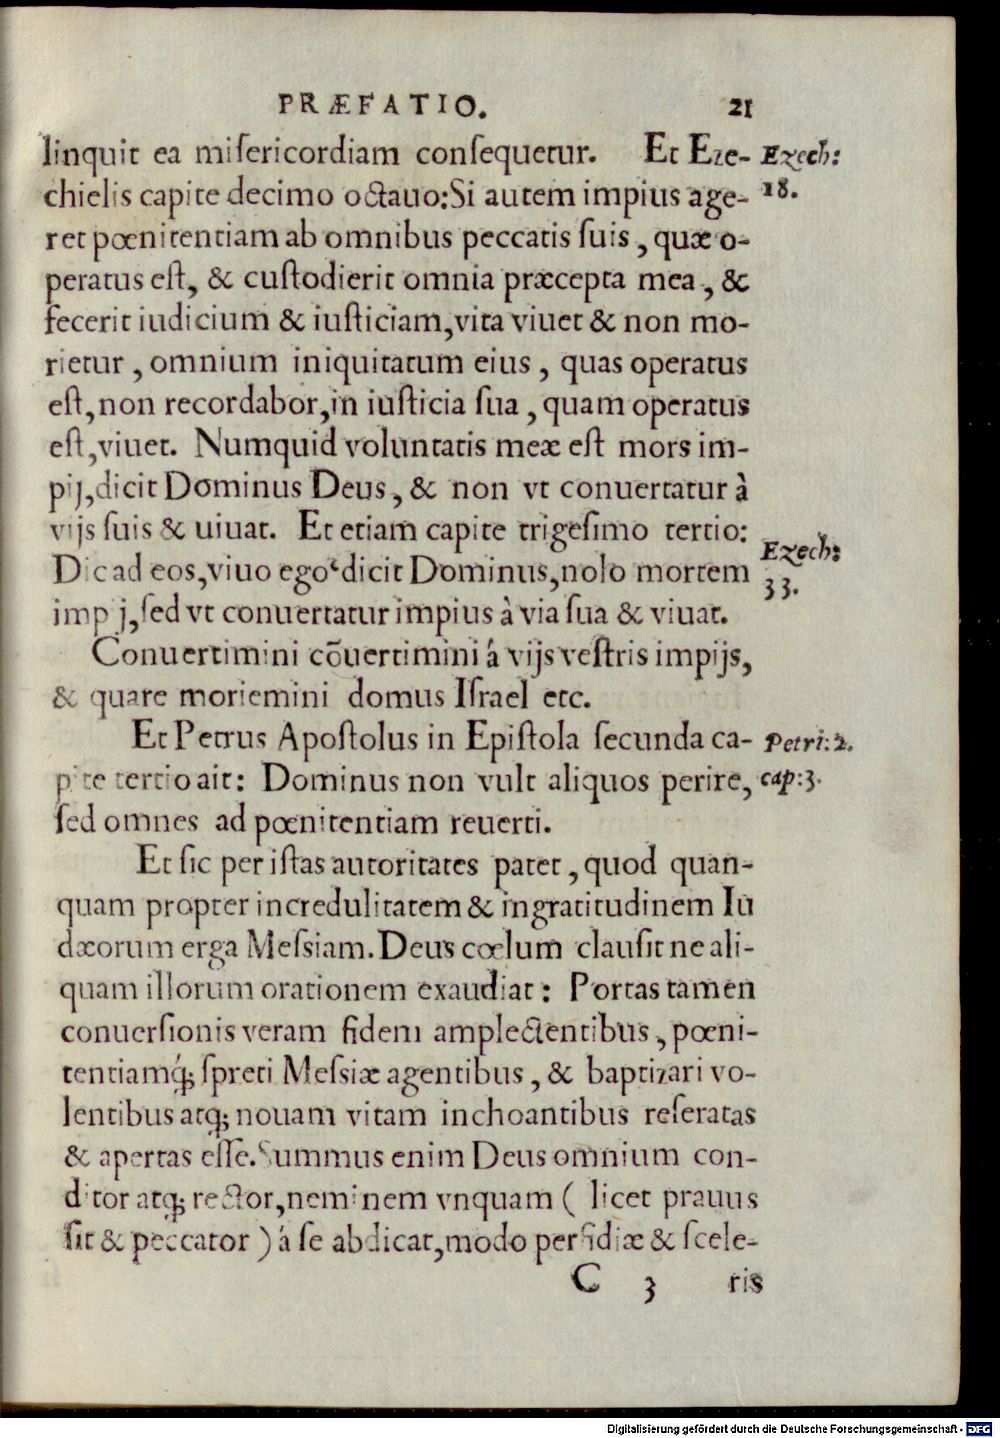 PRÆFATIO. 21
linquit ea miſericordiam conſequetur. Et Eze- Ezech:
chielis capite decimo octauo: Si autem impius age- 18.
ret pœnitentiam ab omnibus peccatis ſuis, quæ o-
peratus eſt, & cuſtodierit omnia præcepta mea, &
fecerit iudicium & iuſticiam, vita viuet & non mo-
rietur, omnium iniquitatum eius, quas operatus
eſt, non recordabor, in iuſticia ſua, quam operatus
eſt, viuet. Numquid voluntatis meæ eſt mors im-
pij, dicit Dominus Deus, & non vt conuertatur à
vijs ſuis & uiuat. Et etiam capite trigeſimo tertio:
Dic ad eos, viuo ego dicit Dominus, nolo mortem Ezech:
impij, ſed vt conuertatur impius à via ſua & viuat. 33.
Conuertimini cōuertimini á vijs veſtris impijs,
& quare moriemini domus Iſrael etc.
Et Petrus Apoſtolus in Epiſtola ſecunda ca- Petri: 2.
pite tertio ait: Dominus non vult aliquos perire, cap: 3.
ſed omnes ad pœnitentiam reuerti.
Et ſic per iſtas autoritates patet, quod quan-
quam propter incredulitatem & ingratitudinem Iu
dæorum erga Meſsiam. Deus cœlum clauſit ne ali-
quam illorum orationem exaudiat: Portas tamen
conuerſionis veram fidem amplectentibus, pœni-
tentiamq́; ſpreti Meſsiæ agentibus, & baptizari vo-
lentibus atq; nouam vitam inchoantibus reſeratas
& apertas eſſe. Summus enim Deus omnium con-
ditor atq; rector, neminem vnquam ( licet prauus
ſit & peccator ) á ſe abdicat, modo perfidiæ & ſcele-
C 3 ris
Digitalisierung gefördert durch die Deutsche Forschungsgemeinschaft - DFG